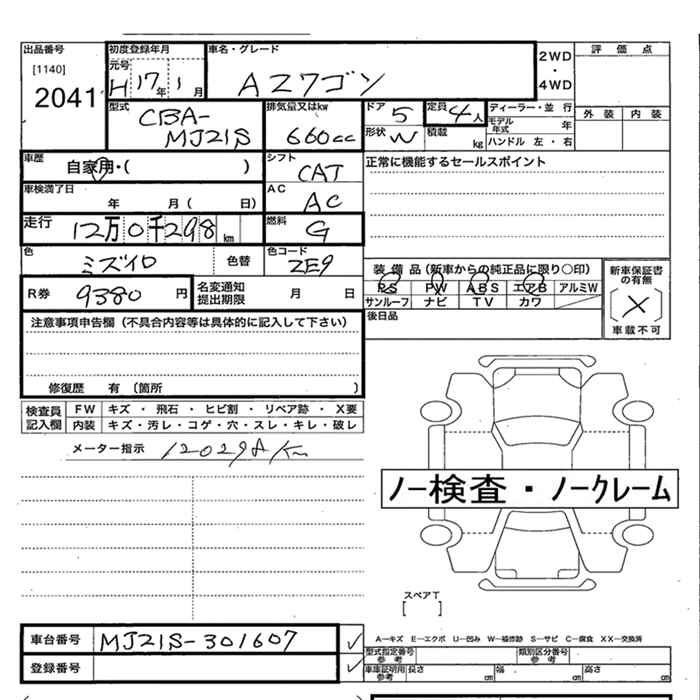 出品番号 初度登録年月 車名・グレード 2WD・4WD 評価点
[1140] 元号
2041 H17年1月 AZワゴン
型式 排気量又はkw ドア 定員 ディーラー・並行 外装 内装
CBA-MJ21S 660cc 5 4人 モデル年式 年
形状 W 積載 kg ハンドル 左・右
車歴 シフト 正常に機能するセールスポイント
自家用・( ) CAT
車検満了日 AC
年 月( 日) AC
走行 12万0千298km 燃料 G
色 ミズイロ 色替 色コード ZE9 装備品(新車からの純正品に限り○印) 新車保証書の有無
PS PW ABS エアB アルミW
R券 9380円 名変通知提出期限 月 日 サンルーフ ナビ TV カワ 〔×〕
車載不可
注意事項申告欄(不具合内容等は具体的に記入して下さい) 後日品
修復歴 有 〔箇所 〕
検査員記入欄 FW キズ・飛石・ヒビ割・リペア跡・X要
内装 キズ・汚レ・コゲ・穴・スレ・キレ・破レ
メーター指示 120298Km
ノー検査・ノークレーム
スペアT
[ ]
車台番号 MJ21S-301607 ✓ A―キズ E―エクボ U―凹み W―補修跡 S―サビ C―腐食 XX―交換済
登録番号 ✓ 型式指定番号 参考 類別区分番号 参考
車庫証明用 参考 長さ cm 幅 cm 高さ cm